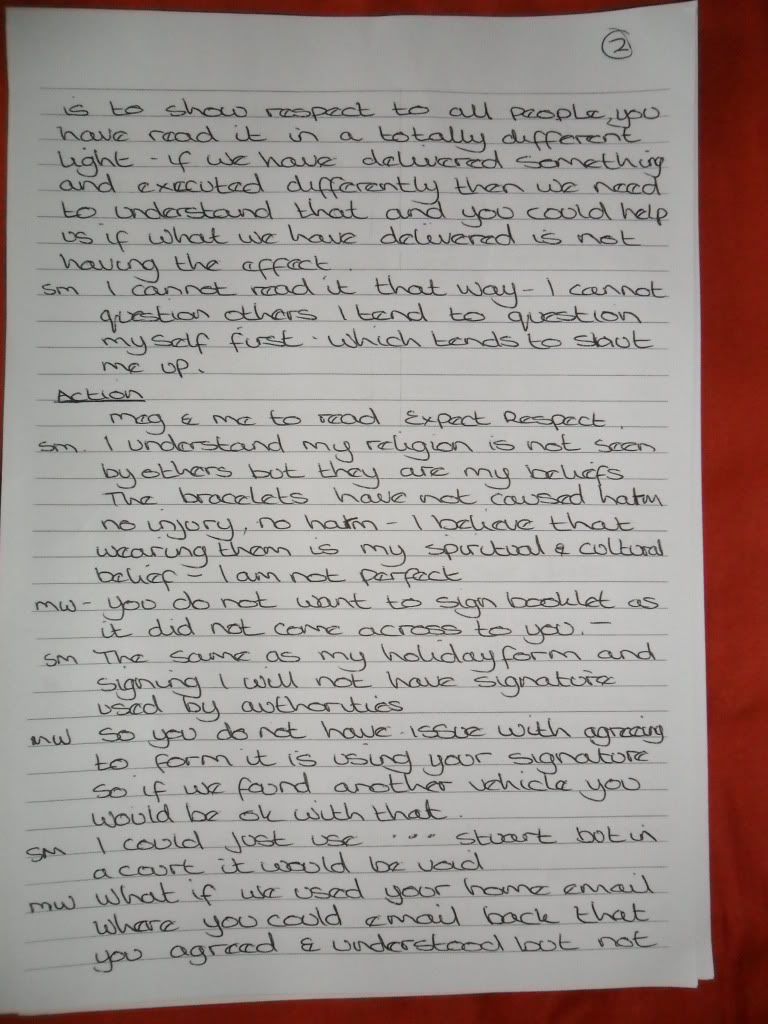 2
is to show respect to all people, you
have read it in a totally different
light - if we have delivered something
and executed differently then we need
to understand that and you could help
us if what we have delivered is not
having the affect.
SM I cannot read it that way - I cannot
question others I tend to question
myself first. which tends to shut
me up.
Action
Meg & me to read Expect Respect.
SM. I understand my religion is not seen
by others but they are my beliefs
The bracelets have not caused harm
no injury, no harm - I believe that
wearing them is my spiritual & cultural
belief - I am not perfect
MW - you do not want to sign booklet as
it did not come across to you. -
SM The same as my holiday form and
signing I will not have signature
used by authorities
MW so you do not have issue with agreeing
to form it is using your signature
so if we found another vehicle you
would be ok with that.
SM I could just use ... stuart but in
a court it would be void
MW What if we used your home email
where you could email back that
you agreed & understood but not